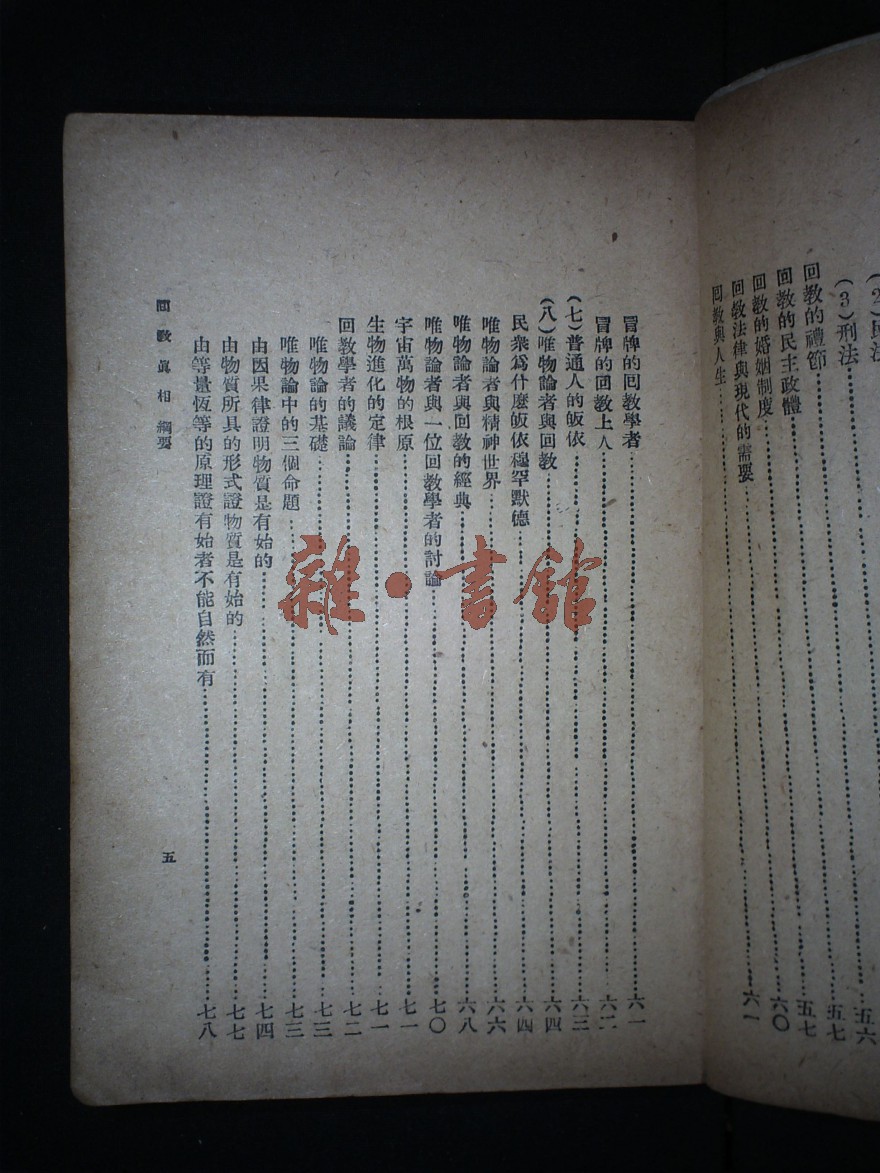 (2)民法……五六
(3)刑法……五七
回教的禮節……五七
回教的民主政體……六〇
回教的婚姻制度
回教法律與現代的需要……六一
回教與人生
冒牌的回教學者……六一
冒牌的回教上人……六二
(七)普通人的皈依……六三
(八)唯物論者與回教……六四
民衆爲什麽皈依穆罕默德……六四
唯物論者與精神世界……六六
唯物論者與回教的經典……六八
唯物論者與一位回教學者的討論……七〇
宇宙萬物的根原……七一
生物進化的定律……七一
回教學者的議論……七二
唯物論的基礎……七三
唯物論中的三個命題……七三
由因果律證明物質是有始的……七四
由物質所具的形式證物質是有始的……七七
由等量恆等的原理證有始者不能自然而有……七八
回教眞相 綱要
五
雜·書館